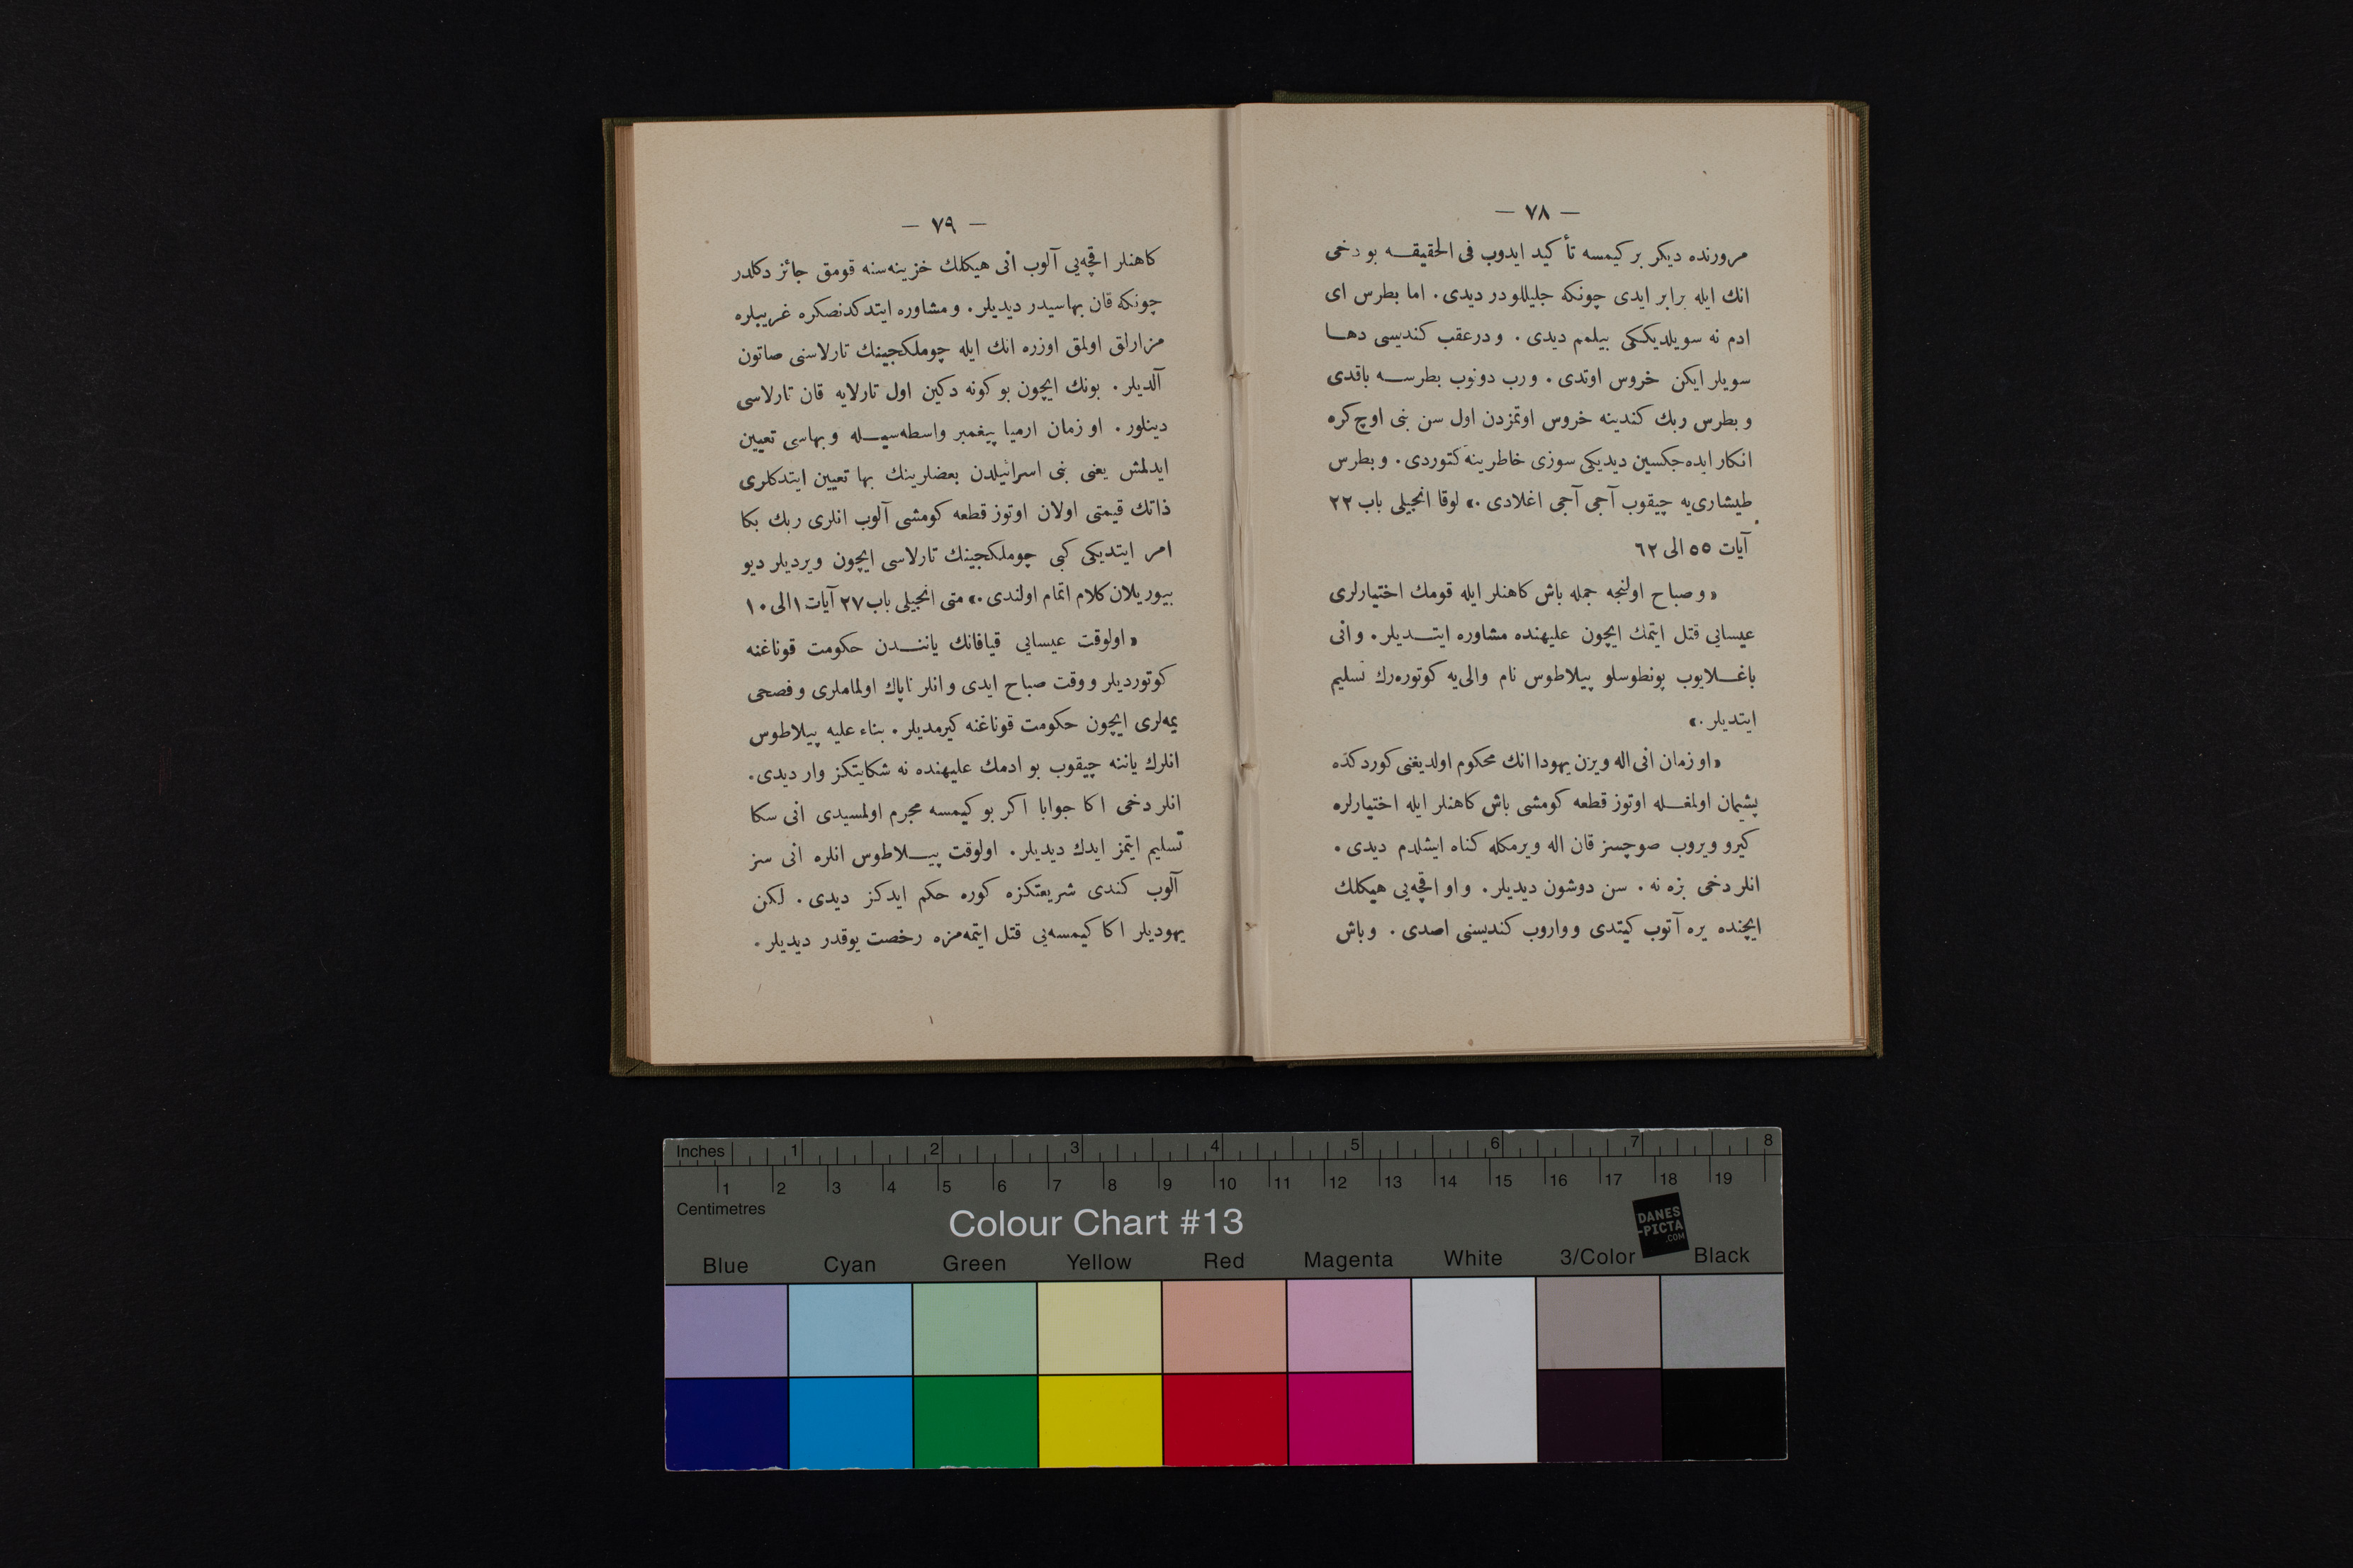 — ٧٨ —
مرورنده ديكر بر كيمسه تأكيد ايدوب فى الحقيقـه بو دخى
انك ايله برابر ايدى چونكه جليللو در ديدى. اما بطرس اى
ادم نه سويلديككى بيلمم ديدى. و درعقب كنديسى دهـا
سويلر ايكن خروس اوتدى. و رب دونوب بطرسـه باقدى
و بطرس ربك كندينه خروس اوتمزدن اول سن بنى اوچ كره
انكار ايده‌جكسين ديديكى سوزى خاطرينه كتوردى. و بطرس
طيشارى‌يه چيقوب آجى آجى اغلادى.» لوقا انجيلى باب ٢٢
آيات ٥٥ الى ٦٢
«و صباح اولنجه جمله باش كاهنلر ايله قومك اختيارلرى
عيسايى قتل ايتمك ايچون عليهنده مشاوره ايتـديلر. و انى
باغـلايوب پونطوسلو پيلاطوس نام والى‌يه كوتوره‌رك تسليم
ايتديلر.»
«او زمان انى اله ويرن يهودا انك محكوم اولديغنى كوردكده
پشيمان اولمغـله اوتوز قطعه كومشى باش كاهنلر ايله اختيارلره
كيرو ويروب صوچسز قان اله ويرمكله كناه ايشلدم ديدى.
انلر دخى بزه نه. سن دوشون ديديلر. و او اقچه‌يى هيكلك
ايچنده يره آتوب كيتدى و واروب كنديسنى اصدى. و باش
— ٧٩ —
كاهنلر اقچه‌يى آلوب انى هيكلك خزينه‌سنه قومق جائز دكلدر
چونكه قان بهاسيدر ديديلر. و مشاوره ايتدكدنصكره غريبلره
مزارلق اولمق اوزره انك ايله چوملكجينك تارلاسنى صاتون
آلديلر. بونك ايچون بو كونه دكين اول تارلايه قان تارلاسى
دينلور. او زمان ارميا پيغمبر واسطه‌سيـله و بهاسى تعيين
ايدلمش يعنى بنى اسرائيلدن بعضلرينك بها تعيين ايتدكلرى
ذاتك قيمتى اولان اوتوز قطعه كومشى آلوب انلرى ربك بكا
امر ايتديكى كبى چوملكجينك تارلاسى ايچون ويرديلر ديو
بيوريلان كلام اتمام اولندى.» متى انجيلى باب ٢٧ آيات ١ الى ١٠
«اولوقت عيسايى قيافانك ياننـدن حكومت قوناغنه
كوتورديلر و وقت صباح ايدى و انلر ناپاك اولماملرى و فصحى
يمه‌لرى ايچون حكومت قوناغنه كيرمديلر. بناء عليه پيلاطوس
انلرك ياننه چيقوب بو ادمك عليهنده نه شكايتكز وار ديدى.
انلر دخى اكا جوابا اكر بو كيمسه مجرم اولمسيدى انى سكا
تسليم ايتمز ايدك ديديلر. اولوقت پيـلاطوس انلره انى سز
آلوب كندى شريعتكزه كوره حكم ايدكز ديدى. لكن
يهوديلر اكا كيمسه‌يى قتل ايتمه‌مزه رخصت يوقدر ديديلر.
Inches 1 2 3 4 5 6 7 8
1 2 3 4 5 6 7 8 9 10 11 12 13 14 15 16 17 18 19
Centimetres
Colour Chart #13
DANES
-PICTA
.COM
Blue Cyan Green Yellow Red Magenta White 3/Color Black